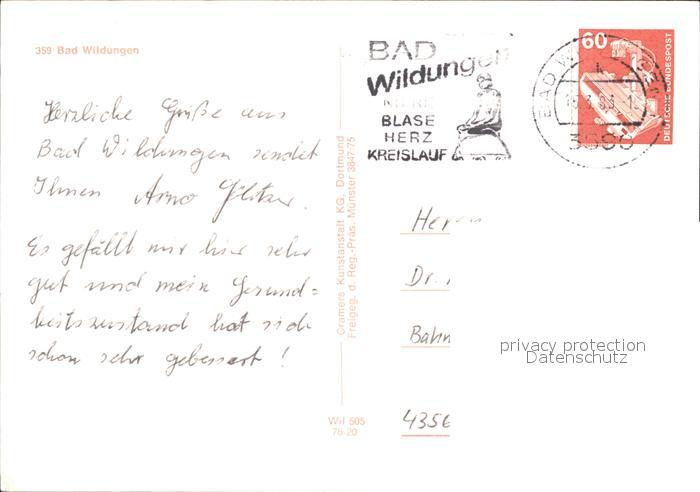 359 Bad Wildungen
BAD
Wildungen
NIERE
BLASE
HERZ
KREISLAUF
BAD W
3590
60
DEUTSCHE BUNDESPOST
Herzliche Grüße aus
Bad Wildungen sendet
Ihnen Arno
Es gefällt mir hier sehr
gut und mein Gesund=
heitszustand hat sich
schon sehr gebessert !
Cramers Kunstanstalt KG, Dortmund
Freigeg. d. Reg.-Präs. Münster 3847/75
Wil 505
76-20
Herrn
Dr.
Bahn
4356
privacy protection
Datenschutz